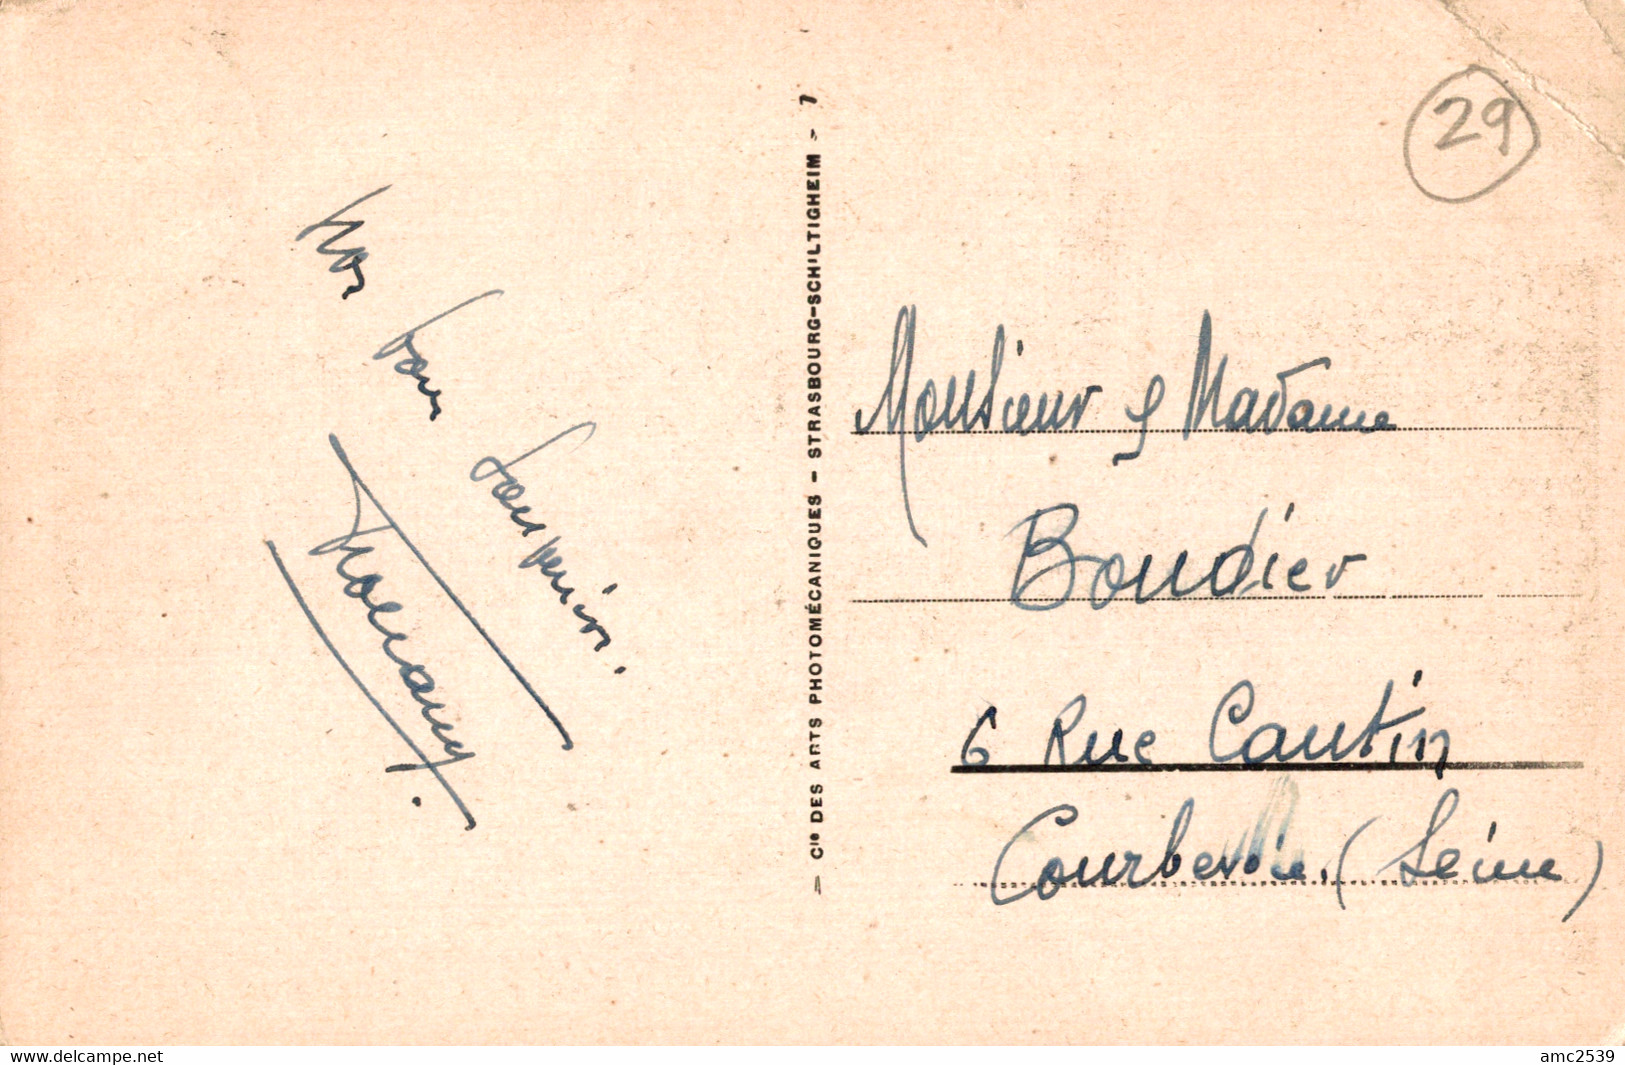 29
Nos bons
Souvenirs.
Cie DES ARTS PHOTOMÉCANIQUES - STRASBOURG-SCHILTIGHEIM - 7
Monsieur & Madame
Boudier
6 Rue Cantin
Courbevoie. (Seine)
www.delcampe.net
amc2539